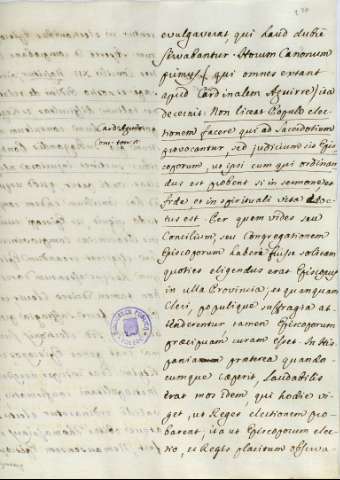 evulgaverat, qui haud dubie
servabantur. Horum Canonum
primus (qui omnes extant
apud Cardinalem Aguirre) ita
decernit. Non liceat Populo elec-
tionem facere qui ad Sacerdotium
provocantur, sed judicium sit Epis-
coporum, ut ipsi eum qui ordinan-
dus est probent si in sermone, et
fide et in spirituali vita edoc-
tus est. Per quem vides seu
Concilium, seu Congregationem
Episcoporum haberi fuisse solitam
quoties eligendus erat Episcopus
in illa Provincia, et quamquam
Cleri, populique suffragia at-
tenderentur tamen Episcoporum
præcipuam curam esse. In His-
pania præterea quando-
cumque cæperit, laudabilis
erat mos idem, qui hodie vi-
get, ut Reges electionem pro-
barent, ita ut Episcoporum elec-
tio, et Regis placitum observa-
Card. Aguirre
Conc. tom.